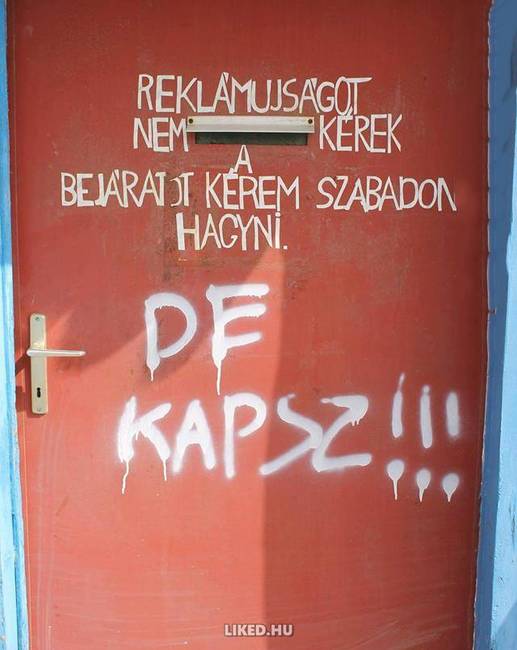 REKLÁMUJSÁGOT
NEM KÉREK
A
BEJÁRATOT KÉREM SZABADON
HAGYNI.
DE
KAPSZ!!!
LIKED.HU